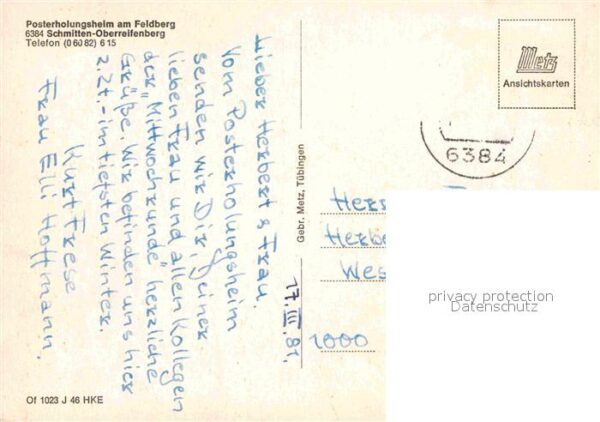 Posterholungsheim am Feldberg
6384 Schmitten-Oberreifenberg
Telefon (0 60 82) 6 15
Metz
Ansichtskarten
6384
Lieber Herbert & Frau.
Vom Posterholungsheim
senden wir Dir, Deiner
lieben Frau und allen Kollegen
der „Mittwochrunde" herzliche
Grüße. Wir befinden uns hier
z.Zt.- im tiefsten Winter.
Kurt Frese
Frau Elli Hoffmann.
17. III. 81.
Gebr. Metz, Tübingen
Herr
Herbe
Wes
1000
privacy protection
Datenschutz
Of 1023 J 46 HKE